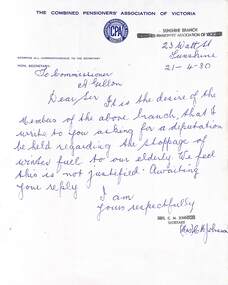 THE COMBINED PENSIONERS' ASSOCIATION OF VICTORIA
SUNSHINE BRANCH
PENSIONERS' ASSOCIATION OF VIC
CPA
23 Watt St
Sunshine
ADDRESS ALL CORRESPONDENCE TO THE SECRETARY
HON. SECRETARY:
21-4-80
To Commissioner
A Gillon
Dear Sir It is the desire of the
Members of the above branch, that I
write to you asking for a deputation
be held regarding the stoppage of
winter fuel to our elderly. We feel
this is not justified. Awaiting
your reply
I am
Yours respectfully
MRS. C. M. JOHNSON
SECRETARY
Mrs C M Johnson